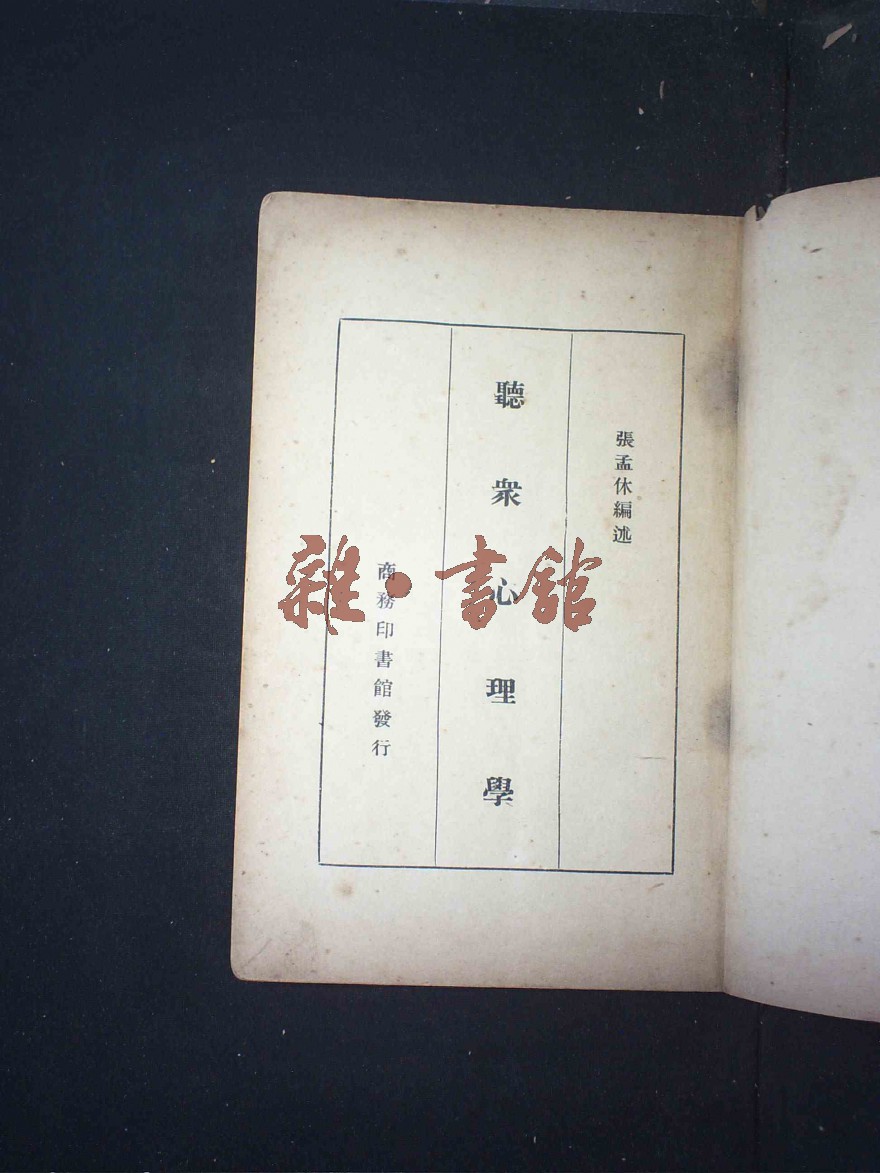 張孟休編述
聽衆心理學
商務印書館發行
雜·書館